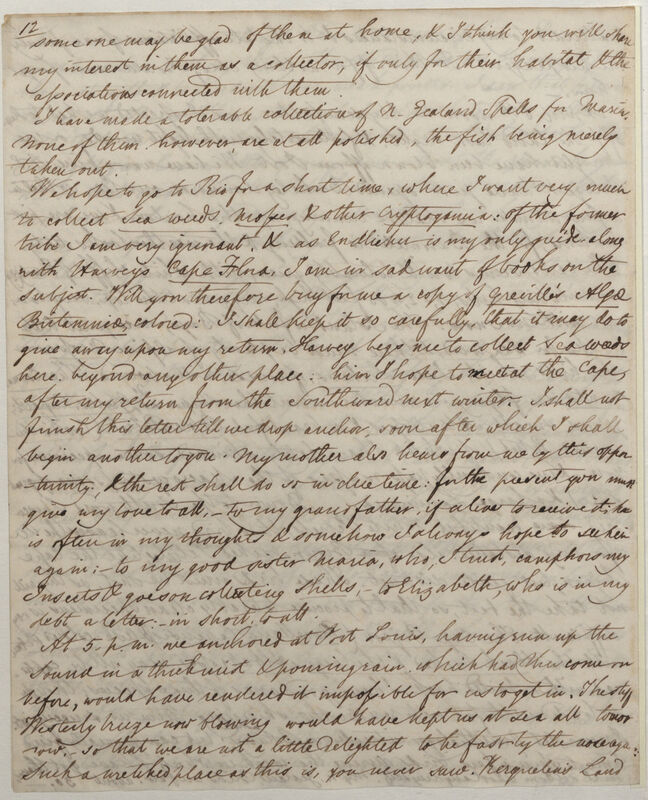 12
some one may be glad of them at home, & I think you will share
my interest in them as a collector, if only for their habitat & the
associations connected with them.
I have made a tolerable collection of N. Zealand Shells for Maria,
None of them however are at all polished, the fish being merely
taken out.
We hope to go to Rio for a short time, where I want very much
to collect Sea weeds, Mosses & other Cryptogamia: of the former
tribe I am very ignorant, & as Endlicher is my only guide along
with Harveys Cape Flora, I am in sad want of books on the
subject. Will you therefore buy for me a copy of Greville's Algæ
Britannicæ, colored: I shall keep it so carefully, that it may do to
give away upon my return, Harvey begs me to collect Sea weeds
here beyond any other place: him I hope to meet at the Cape,
after my return from the Southward next winter. I shall not
finish this letter till we drop anchor, soon after which I shall
begin another to you. My mother also hears from me by this oppor
-tunity, & the rest shall do so in due time: for the present you must
give my love to all, – to my grandfather, if alive to receive it; he
is often in my thoughts & somehow I always hope to see him
again; – to my good sister Maria, who, I trust, camphors my
Insects & goes on collecting Shells, – to Elizabeth, who is in my
debt a letter – in short, to all.
At 5. p.m. we anchored at Port Louis, having run up the
Sound in a thick mist & pouring rain, which had this come on
before, would have rendered it impossible for us to get in. The stiff
Westerly breeze now blowing would have kept us at sea all tomor
row, – so that we are not a little delighted to be fast by the nose again:
Such a wretched place as this is, you never saw. Kerguelen's Land